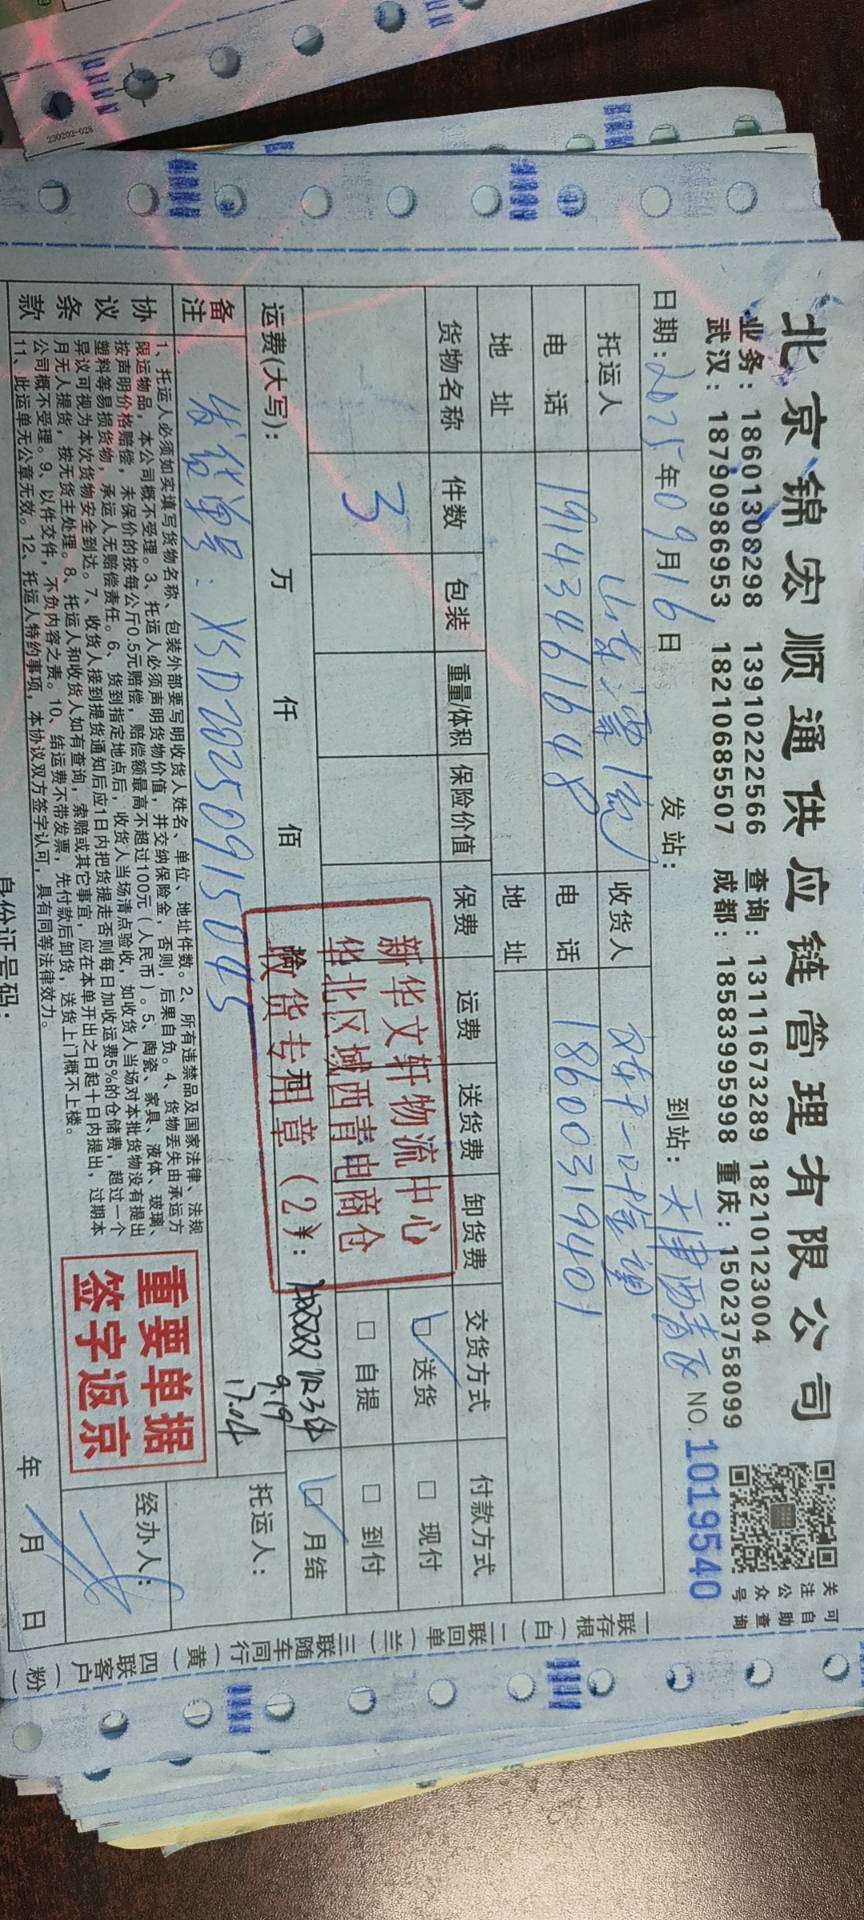 北京锦宏顺通供应链管理有限公司
关注公众号
可自助查询
业务：18601308298 13910222566 查询：13111673289 18210123004
武汉：18790986953 18210685507 成都：18583995998 重庆：15023758099
日期：2025年09月16日 发站： 到站：天津西青区 NO.1019540
托运人 山东 收货人
电话 19143461648 电话 18600319401
地址 地址
货物名称 件数 包装 重量/体积 保险价值 保费 运费 送货费 卸货费 交货方式 付款方式
3
送货 现付
自提 到付
月结
新华文轩物流中心
华北区域西青电商仓
收货专用章（2）
运费(大写)： 万 仟 佰 ¥：
收3件
9.19
17.04
备注 发货单号：XSD20250915045
托运人：
协议条款
1、托运人必须如实填写货物名称、包装外部要写明收货人姓名、单位、地址件数。2、所有违禁品及国家法律、法规
限运物品，本公司概不受理。3、托运人必须声明货物价值，并交纳保险金，否则，后果自负。4、货物丢失由承运方
按声明价格赔偿，未保价的按每公斤0.5元赔偿，赔偿额最高不超过100元（人民币）。5、陶瓷、家具、液体、玻璃、
塑料等易损货物，承运人无赔偿责任。6、货到指定地点后，收货人当场清点验收，如收货人当场对本批货物没有提出
异议可视为本次货物安全到达。7、收货人接到提货通知后应1日内把货提走否则每日加收运费5%的仓储费，超过一个
月无人提货，按无货主处理。8、托运人和收货人如有查询，索赔或其它事宜，应在本单开出之日起十日内提出，过期本
公司概不受理。9、以件交件，不负内容之责。10、结运费不带发票，先付款后卸货，送货上门概不上楼。
11、此运单无公章无效。12、托运人特约事项，本协议双方签字认可，具有同等法律效力。
重要单据
签字返京
经办人：
年 月 日
身份证号码：
一联存根（白） 二联回单（兰） 三联随车同行（黄） 四联客户（粉）
230202-028